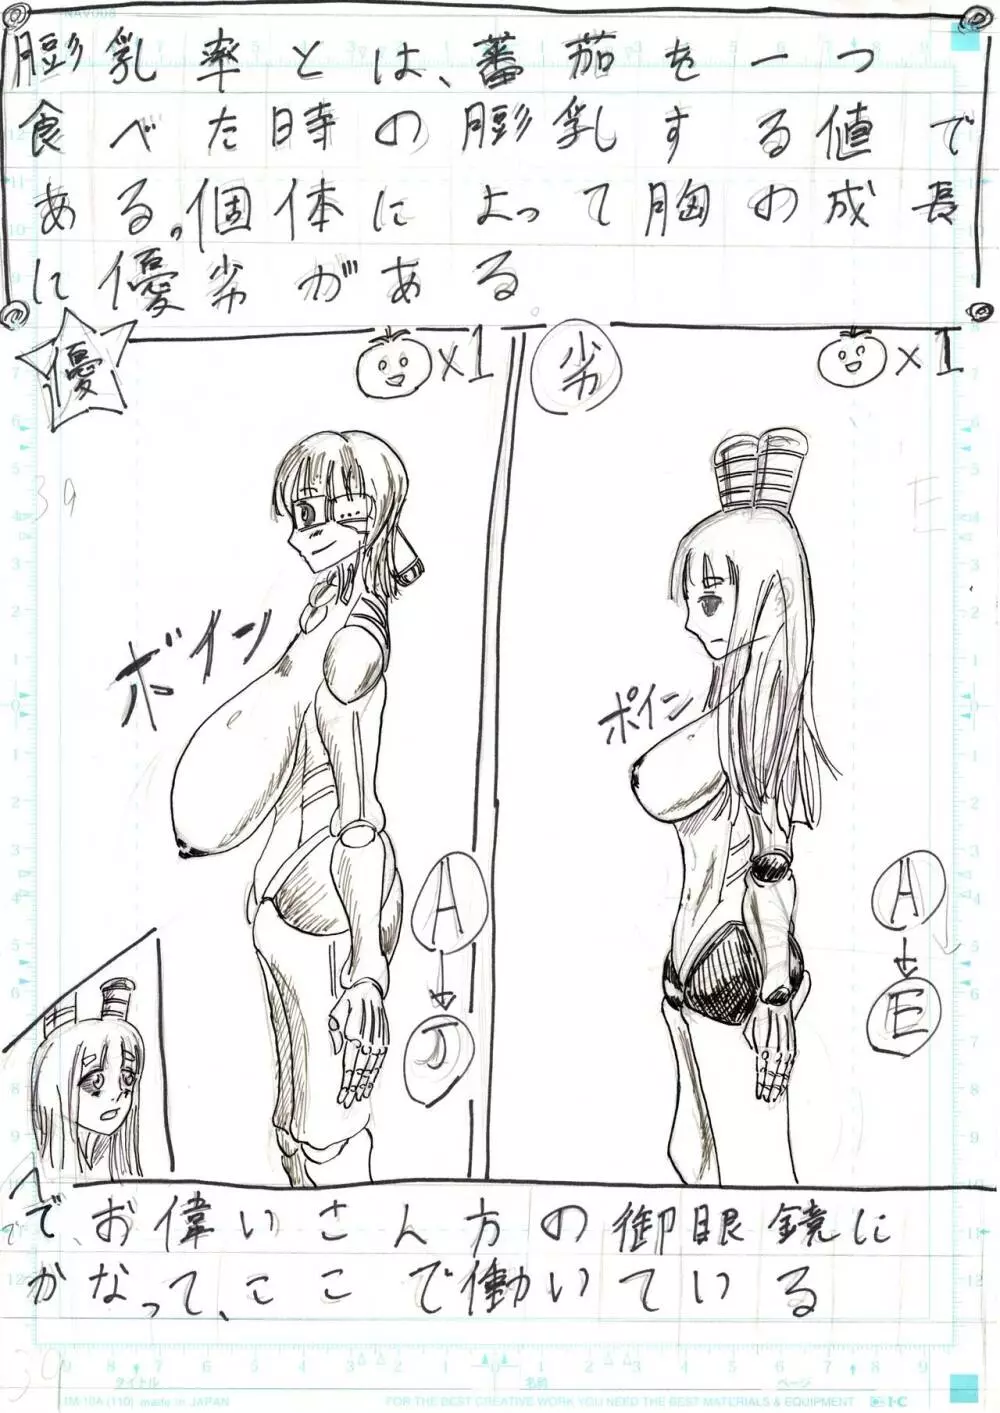 膨乳率とは、蕃茄を一つ
食べた時の膨乳する値で
ある。個体によって胸の成長
に優劣がある。
優
×1
劣
×1
39
E
ボイン
ポイン
A
J
A
E
で、お偉いさん方の御眼鏡に
かなって、ここで働いている
タイトル
名前
ページ
IM-10A (110) made in JAPAN
FOR THE BEST CREATIVE WORK YOU NEED THE BEST MATERIALS & EQUIPMENT
I・C